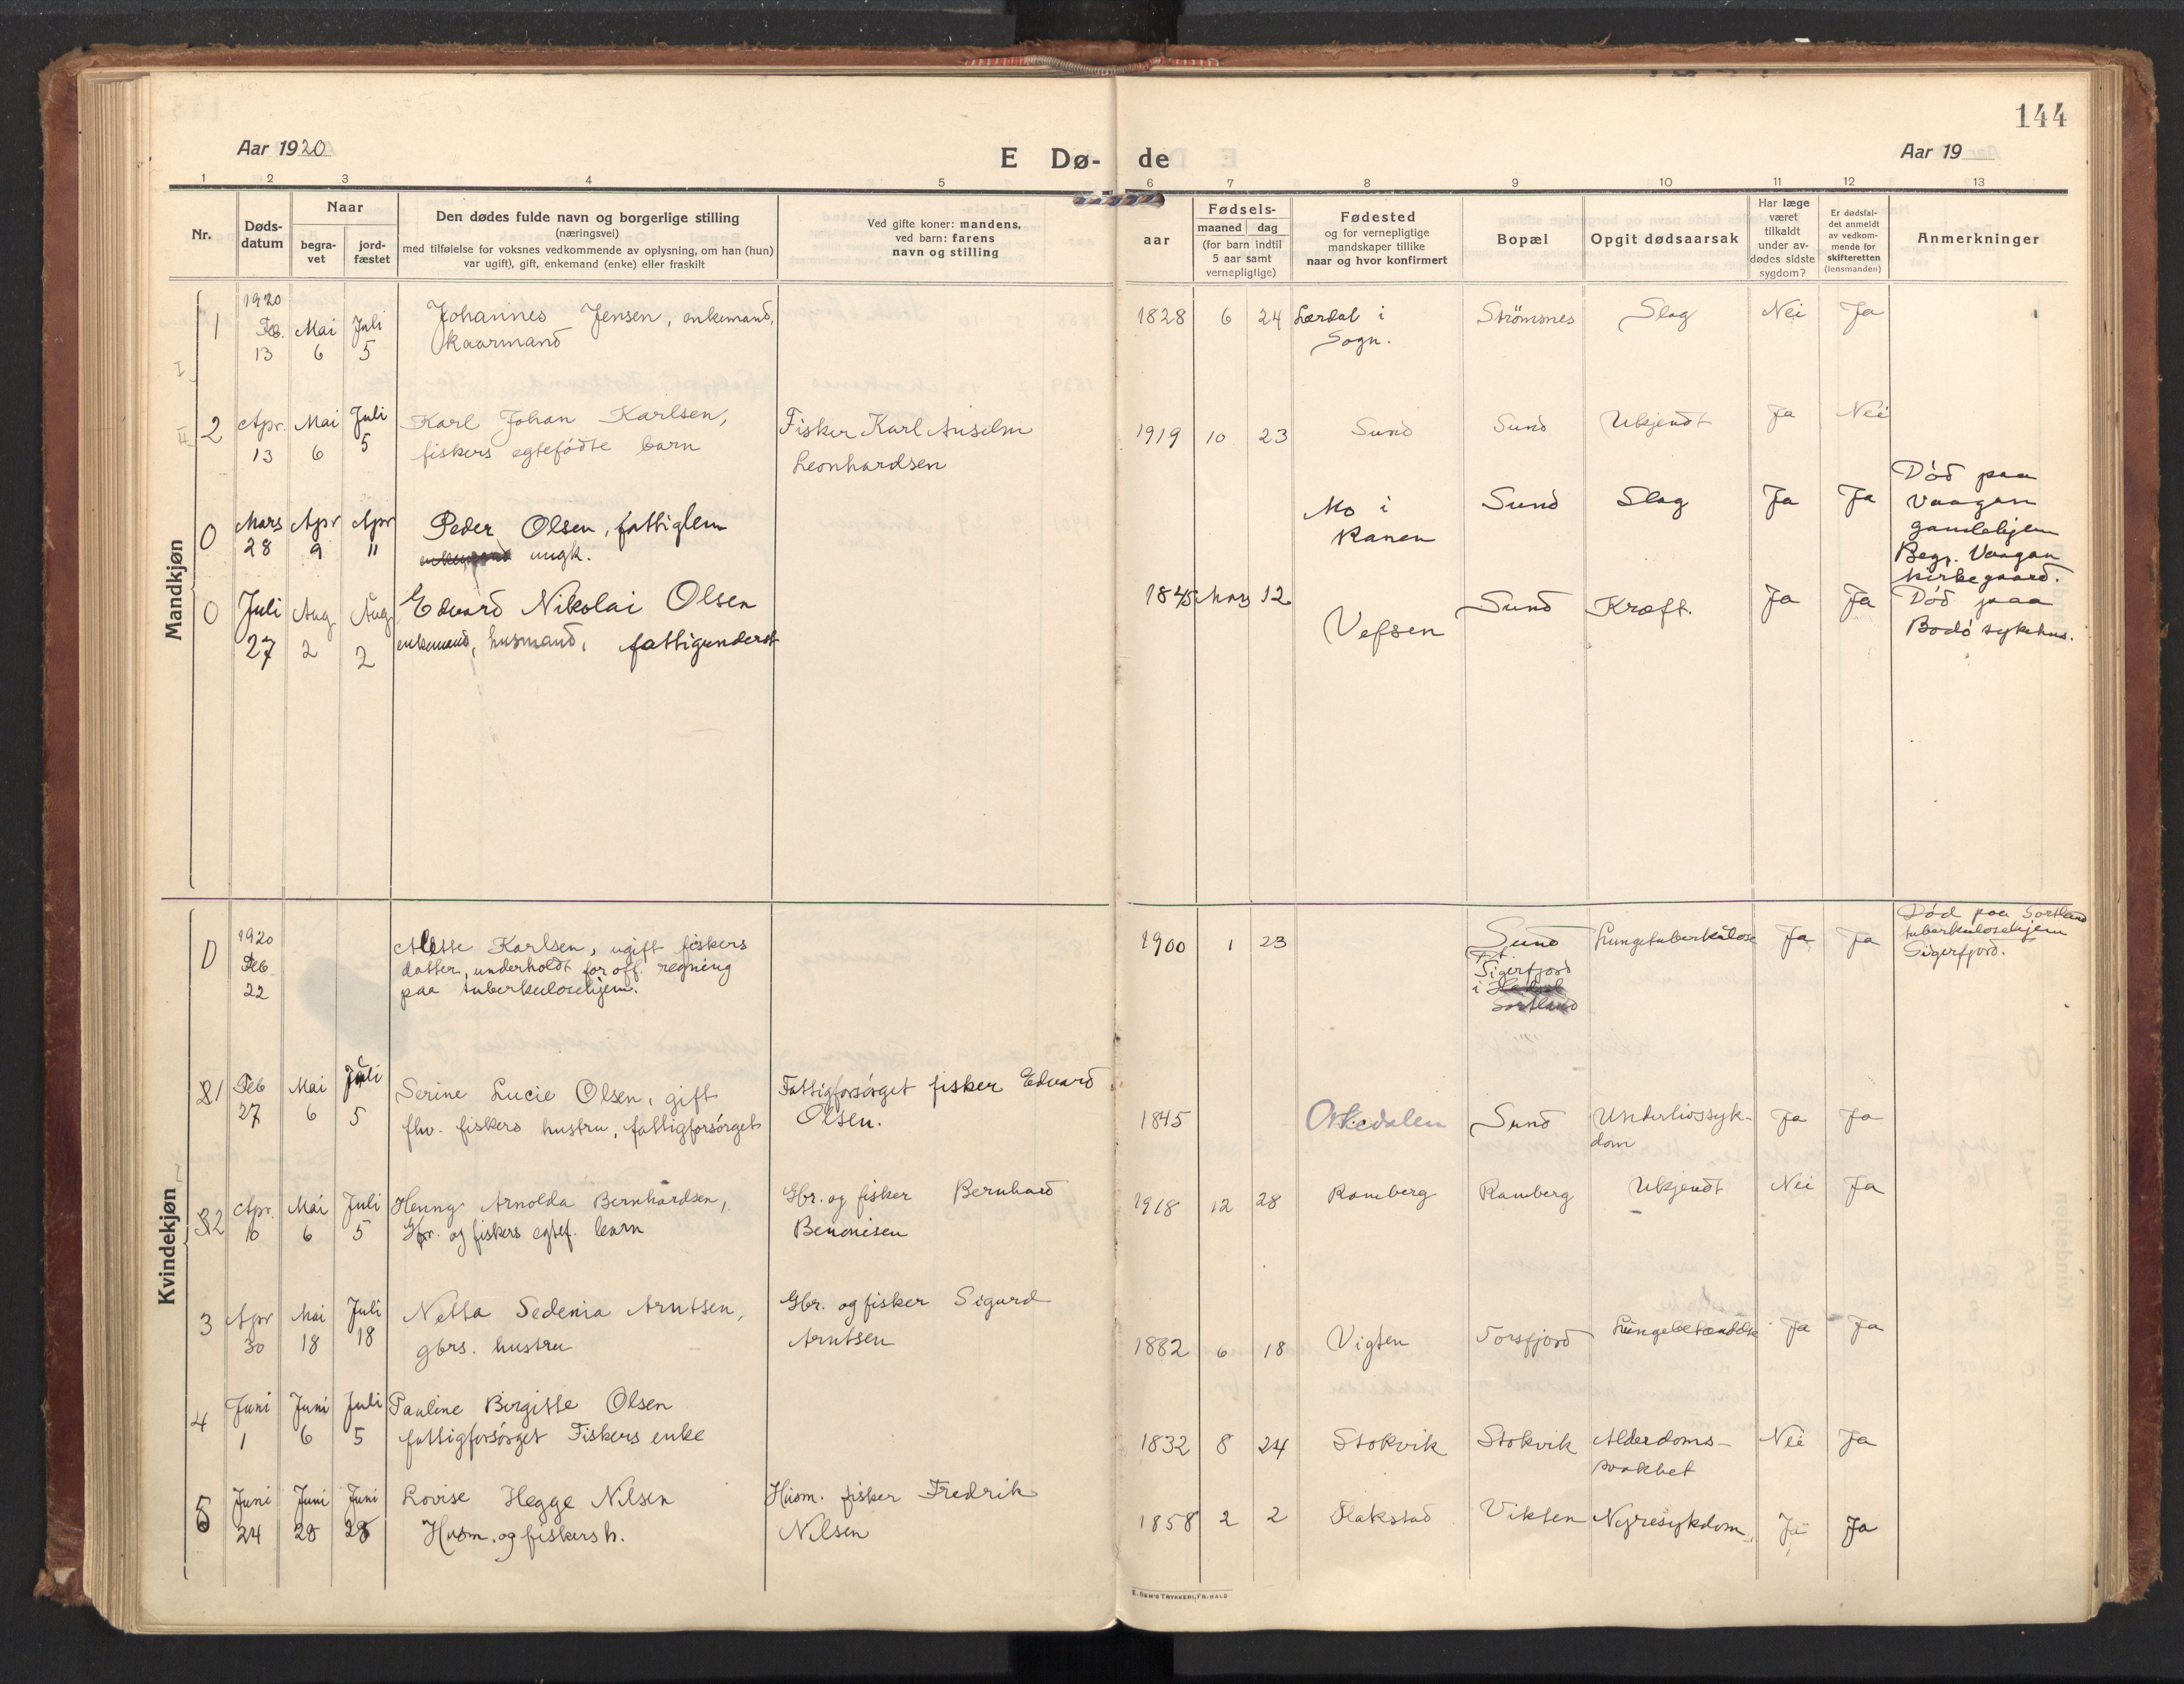 144
Aar 1920
E Dø-
de
Aar 19
1 2 3 4 5 6 7 8 9 10 11 12 13
Nr.
Døds-
datum
Naar
begra-
vet
jord-
fæstet
Den dødes fulde navn og borgerlige stilling
(næringsvei)
med tilføielse for voksnes vedkommende av oplysning, om han (hun)
var ugift), gift, enkemand (enke) eller fraskilt
Ved gifte koner: mandens,
ved barn: farens
navn og stilling
aar
Fødsels-
maaned dag
(for barn indtil
5 aar samt
vernepligtige)
Fødested
og for vernepligtige
mandskaper tillike
naar og hvor konfirmert
Bopæl
Opgit dødsaarsak
Har læge
været
tilkaldt
under av-
dødes sidste
sygdom?
Er dødsfal-
det anmeldt
av vedkom-
mende for
skifteretten
(lensmanden)
Anmerkninger
Mandkjøn
1920
1 Feb. 13 Mai 6 Juli 5 Johannes Jensen, enkemand,
kaarmand
1828 6 24 Lærdal i
Sogn.
Strømsnes Slag Nei Ja
2 Apr. 13 Mai 6 Juli 5 Karl Johan Karlsen,
fiskers egtefødte barn
Fisker Karl Anselm
Leonhardsen
1919 10 23 Sund Sund Ukjendt Ja Nei
0 Mars 28 Apr 9 Apr 11 Peder Olsen, fattiglem
enkemand ungk.
Mo i
Ranen
Sund Slag Ja Ja
Død paa
Vaagan
gamlehjem
Begr. Vaagan
kirkegaard.
0 Juli 27 Aug 2 Aug 2 Edvard Nikolai Olsen
enkemand, husmand, fattigunderst
1845 Mars 12 Vefsen Sund Kræft. Ja Ja
Død paa
Bodø sykehus.
Kvindekjøn
1920
0 Feb 22 Alette Karlsen, ugift fiskers
datter, underholdt for off. regning
paa tuberkulosehjem.
1900 1 23
Sund
f.t.
Sigerfjord
i Hadsel
Sortland
Lungetuberkulose Ja Ja
Død paa Sortland
tuberkulosehjem
Sigerfjord.
1 Feb 27 Mai 6 Juli 5 Serine Lucie Olsen, gift
fhv. fiskers hustru, fattigforsørget
Fattigforsørget fisker Edvard
Olsen.
1845 Orkedalen Sund Underlivssyk-
dom
Ja Ja
2 Apr. 16 Mai 6 Juli 5 Henny Arnolda Bernhardsen,
Gbr. og fiskers egtef. barn
Gbr. og fisker Bernhard
Benonisen
1918 12 28 Ramberg Ramberg Ukjendt Nei Ja
3 Apr 30 Mai 18 Juli 18 Netta Sedenia Arntsen,
gbrs. hustru
Gbr. og fisker Sigurd
Arntsen
1882 6 18 Vigten Torsfjord Ja Ja
4 Juni 1 Juni 6 Juli 5 Pauline Birgitte Olsen
fattigforsørget Fiskers enke
1832 8 24 Stokvik Stokvik Alderdoms-
svakhet
Nei Ja
5 Juni 24 Juni 28 Juni 28 Lovise Hegge Nilsen
Husm. og fiskers h.
Husm. fisker Fredrik
Nilsen
1858 2 2 Flakstad Vikten Nyresykdom Ja Ja
E. SEM'S TRYKKERI, FR.HALD